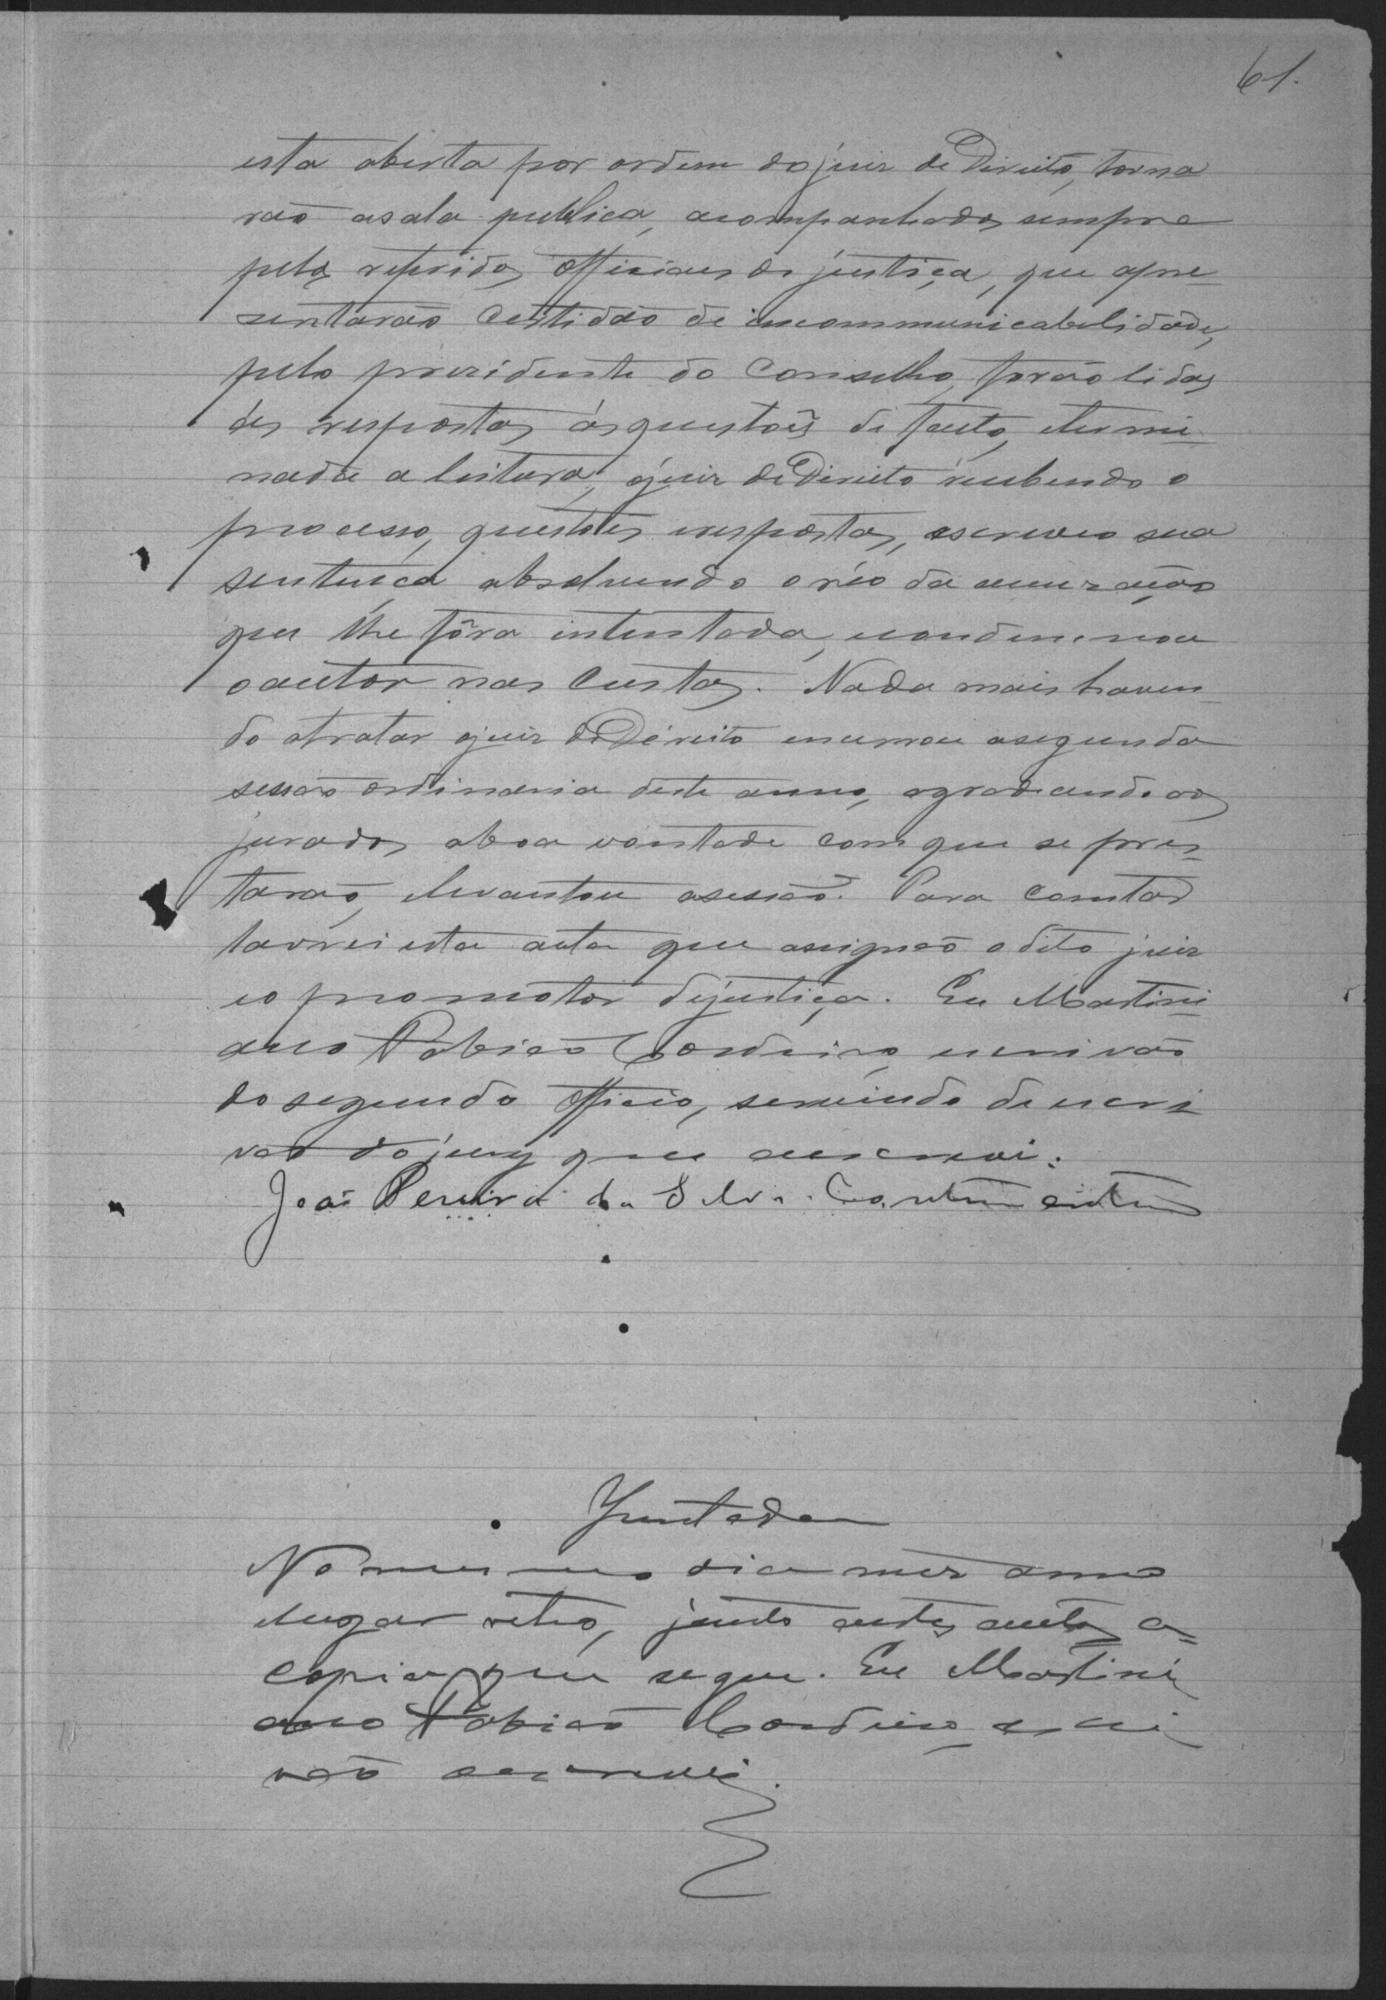 61.
esta aberta por ordem do juiz de Direito, torna
rão a sala publica, acompanhados sempre
pelos referidos officiaes de justiça, que apre-
sentarão certidão de incommunicabilidade,
pelo prezidente do Conselho, forão lidas
as respostas ás questões de facto, e termi-
nada a leitura, o juiz de Direito recebendo o
processo, questões e respostas, escreveo sua
sentença absolvendo o réo da accuzação
que lhe fôra intentada, e condemnou
o autor nas custas. Nada mais haven-
do a tratar o juiz de Direito encerrou a segunda
sessão ordinaria deste anno, agradecendo aos
jurados a boa vontade com que se pres-
tarão, e levantou a sessão. Para constar
lavrei esta acta que assignão o dito juiz
e o promotor de justiça. Eu Martini-
ano Fabião Cordeiro, escrivão
do segundo officio, servindo de escri-
vão do jury que escrevi.
João Pereira da Silva
Juntada
No mesmo dia mez anno
e lugar retro, junto a estes autos a
copia que segue. Eu Martini
ano Fabião Cordeiro, escri
vão escrevi.